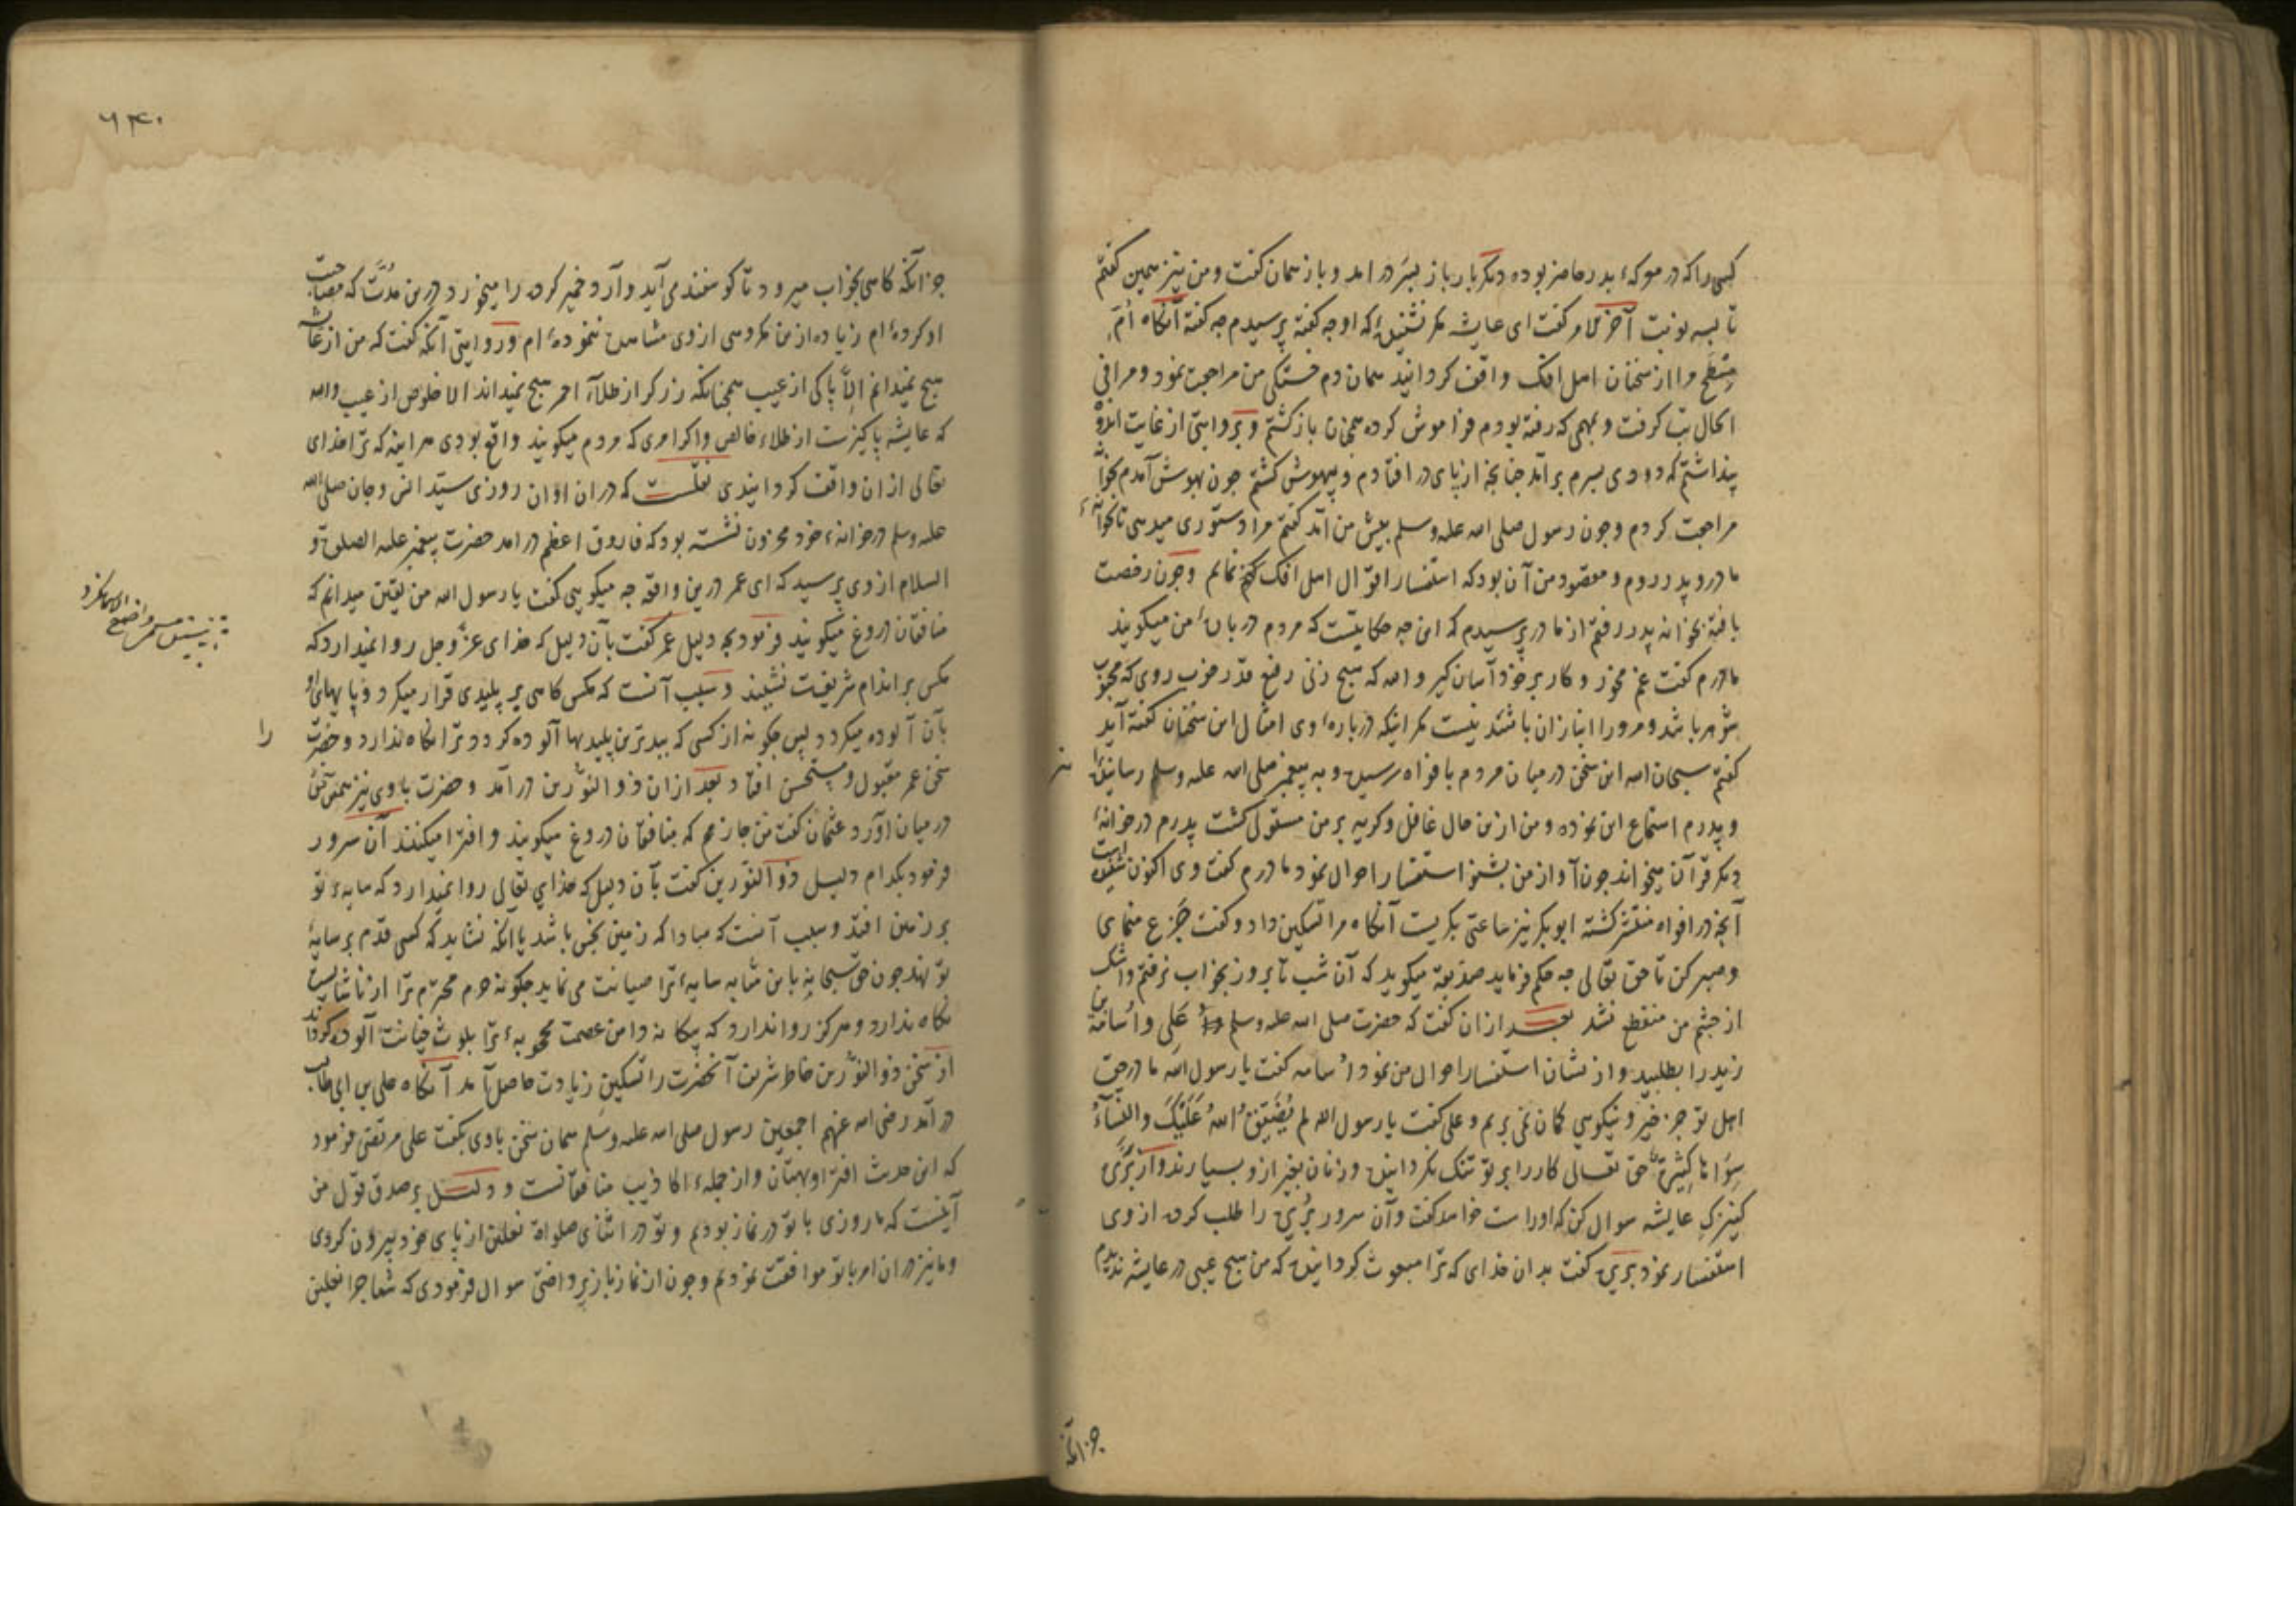 کسی را که در معرکهٔ بدر حاضر بوده دیگر بار باز بسر در امد و باز همان کفت و من نیز همین کفتم
تا سه نوبت آخر الامر کفت ای عایشه مکر نشنیدۀ که او چه کفته پرسیدم چه کفته آنکاه اُمّ
مِسْطَح مرا از سخنان اهل افک واقف کردانید همان دم خستکی من مراجعت نمود و مرا فی
الحال تب کرفت و بمهمی که رفته بودم فراموش کرده همچنان باز کشتم و بروایتی از غایت اندوه
پنداشتم که دودی بسرم برآمد چنانچه از پای در افتادم و بیهوش کشتم چون بهوش آمدم بخانه
مراجعت کردم و چون رسول صلی الله علیه وسلم پیش من آمد کفتم مرا دستوری میدهی تا بخانهٔ
مادر و پدر روم و مقصود من آن بود که استفسار اقوال اهل افک کنم نمایم و چون رخصت
یافته بخانه پدر رفتم از مادر پرسیدم که این چه حکایتست که مردم در بارهٔ من میکویند
مادرم کفت غم مخور و کار بر خود آسان کیر والله که هیچ زنی رفیع قدر خوب روی که محبوب
شوهر باشد و مرورا انبازان باشند نیست مکر اینکه در بارهٔ وی امثال این سخنان کفته آید
کفتم سبحان الله این سخن در میان مردم بافواه رسیده و به پیغمبر صلی الله علیه وسلم رسانیده‌اند
و پدرم استماع این نموده و من ازین حال غافل و کریه بر من مستولی کشت پدرم در خانهٔ
دیکر قرآن میخواند چون آواز من بشنود استفسار احوال نمود مادرم کفت وی اکنون شنیده است
آنچه در افواه منتشر کشته ابوبکر نیز ساعتی بکریست آنکاه مرا تسکین داد و کفت جَزَع منمای
و صبر کن تا حق تعالی چه حکم فرماید صدیقه میکوید که آن شب تا بروز بخواب نرفتم و اشک
از چشم من منقطع نشد بعد ازان کفت که حضرت صلی الله علیه وسلم علی و اُسامة بن
زید را بطلبید و از نشان استفسار احوال من نمود اُسامه کفت یا رسول الله ما در حق
اهل تو جز خیر و نیکویی کمان نمی بریم و علی کفت یا رسول الله لم یُضَیِّق اللهُ عَلَیْکَ والنساءُ
سِوَاهَا کَثِیرَةٌ حق تعالی کار را بر تو تنک نکردانیده و زنان بغیر ازو بسیارند و از بُرَیره
کنیزکِ عایشه سوال کن که او راست خواهد کفت و آن سرور بُرَیره را طلب کرده از وی
استفسار نمود بریره کفت بدان خدای که ترا مبعوث کردانیده که من هیچ عیبی در عایشه ندیدم
جز آنکه
۶۴۰
جز آنکه کاهی بخواب میرود تا کوسفند می آید و آرد خمیر کرده را میخورد درین مُدَّت که مصاحبت
او کرده‌ام زیاده ازین مکروهی از وی مشاهده ننموده‌ام و در روایتی آنکه کفت که من از عایشه
هیچ نمیدانم اِلّا پاکی از عیب همچنانکه زرکر از طلاء احمر هیچ نمیداند الا خلوص از عیب والله
که عایشه پاکیزه تر است از طلاء خالص و اکر امری که مردم میکویند واقع بودی هر اینه که ترا خدای
تعالی ازان واقف کردانیدی نقلست که دران اوان روزی سیّد انس و جان صلی الله
علیه وسلم در خانهٔ خود محزون نشسته بود که فاروق اعظم در امد حضرت پیغمبر علیه الصلوة و
السلام از وی پرسید که ای عمر درین واقعه چه میکویی کفت یا رسول الله من یقین میدانم که
منافقان دروغ میکویند فرمود بچه دلیل عمر کفت بآن دلیل که خدای عزّ و جل روا نمیدارد که
مکس بر اندام شریفت نشیند و سبب آنست که مکس کاهی بر پلیدی قرار میکیرد و پایهای او
بآن آلوده میکردد پس چکونه از کسی که ببدترین پلیدیها آلوده کردد ترا نکاه ندارد و حضرت را
سخن عمر مقبول و مستحسن افتاد بعد ازان ذو النورین در آمد و حضرت با وی نیز همین سخن
در میان آورد عثمان کفت من جازمم که منافقان دروغ میکویند و افترا میکنند آن سرور
فرمود بکدام دلیل ذو النورین کفت بآن دلیل که خدای تعالی روا نمیدارد که سایهٔ تو
بر زمین افتد و سبب آنست که مبادا که زمین نجس باشد یا آنکه نشاید که کسی قدم بر سایهٔ
تو نهد چون حق سبحانه باین مثابه سایهٔ ترا صیانت می نماید چکونه حرم محترم ترا از ناشایست
نکاه ندارد و هرکز روا ندارد که بیکانه دامن عصمت محبوبهٔ ترا بلوث خیانت آلوده کرداند
از سخن ذو النورین خاطر شریف آنحضرت را تسکین زیادت حاصل آمد آنکاه علی بن ابی طالب
در آمد رضی الله عنهم اجمعین رسول صلی الله علیه وسلم همان سخن با وی بکفت علی مرتضی فرمود
که این حدیث افترا و بهتان و از جملهٔ اکاذیب منافقانست و دلیل بر صدق قول من
آینست که ما روزی با تو در نماز بودیم و تو در اثنای صلواة نعلین از پای خود بیرون کردی
و ما نیز دران امر با تو موافقت نمودیم و چون از نماز باز پرداختی سوال فرمودی که شما چرا نعلین